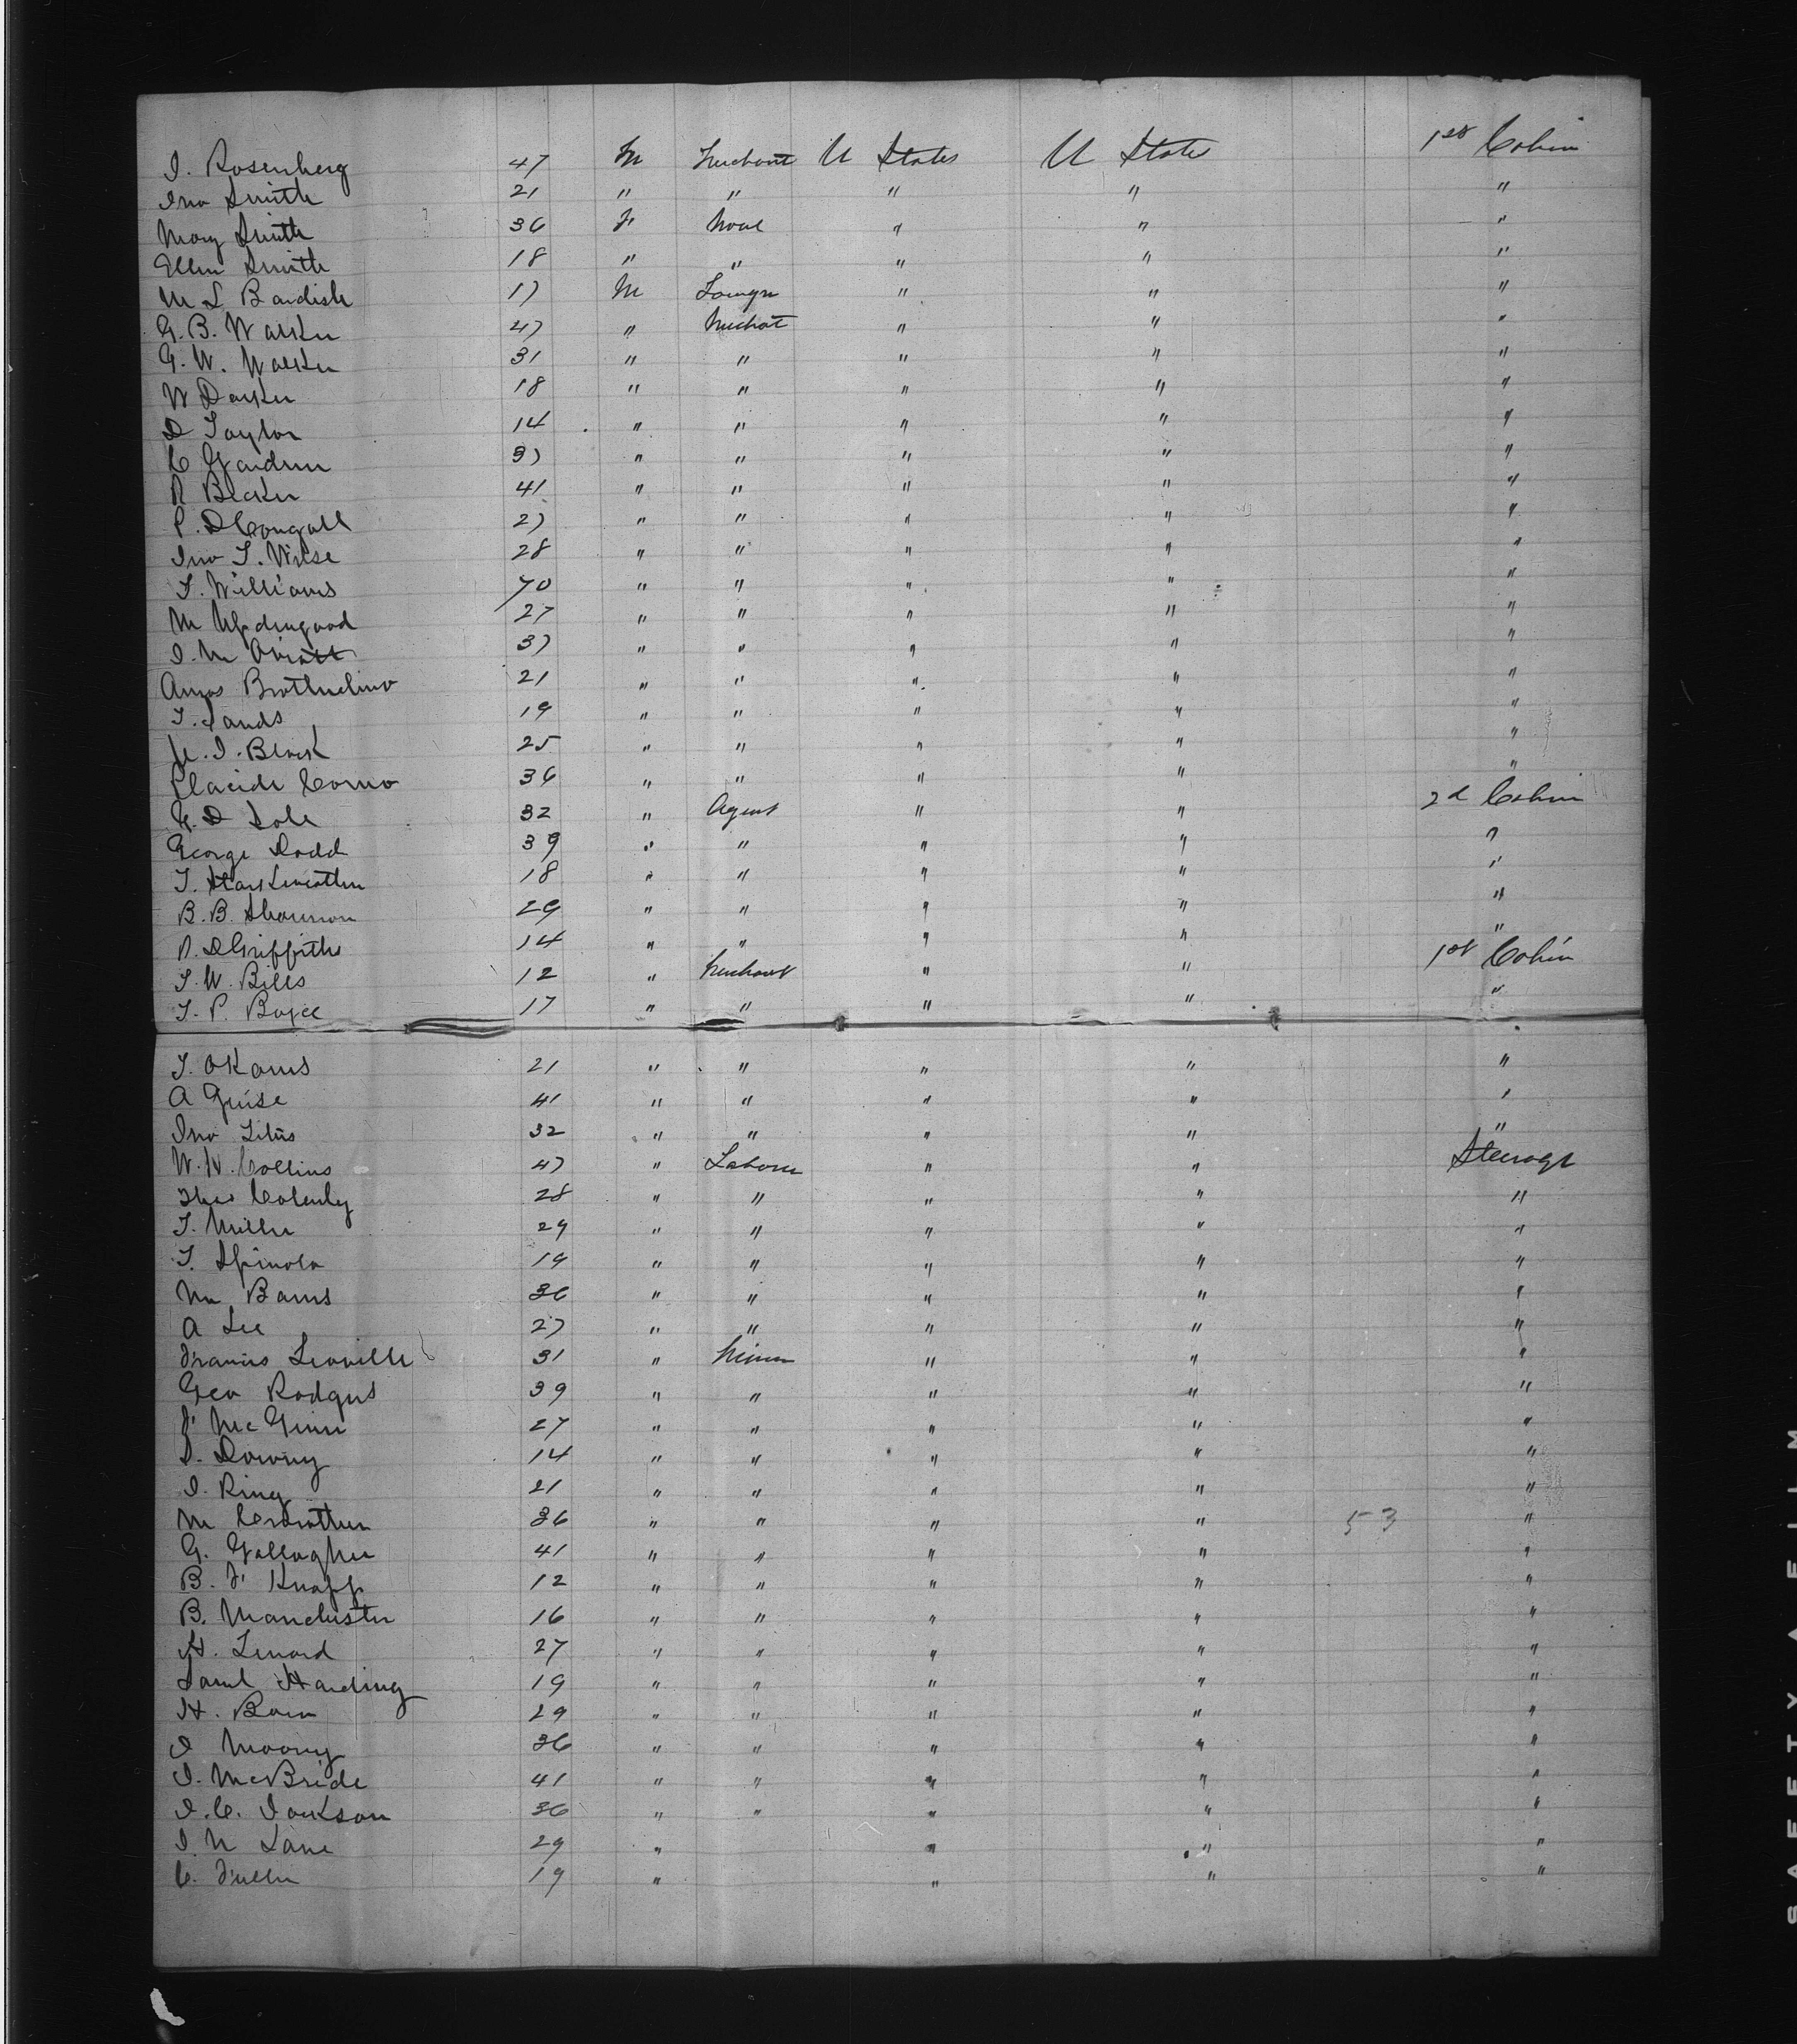 I. Rosenberg 47 M Merchant U States U States 1st Cabin
Jno Smith 21 " " " " "
Mary Smith 36 F None " " "
Ellen Smith 18 " " " " "
M L Bardish 17 M Lawyer " " "
G. B. Walker 47 " Merchant " " "
G. W. Walker 31 " " " " "
W Darker 18 " " " " "
D Taylor 14 " " " " "
C Gardner 37 " " " " "
R Becker 41 " " " " "
P. 27 " " " " "
Jno T. Wise 28 " " " " "
F. Williams 70 " " " " "
M 27 " " " " "
I. M 37 " " " " "
Amos 21 " " " " "
T. Sands 19 " " " " "
J. Black 25 " " " " "
Placide Como 36 " " " " "
D Sole 32 " Agent " " 2d Cabin
George Dodd 39 " " " " "
T. Starkweather 18 " " " " "
B. B. Shannon 29 " " " " "
D Griffiths 14 " " " " "
T. W. Bills 12 " Merchant " " 1st Cabin
T. P. Boyce 17 " " " " "
T. 21 " " " " "
A Guise 41 " " " " "
Jno Titus 32 " " " " "
W. H. Collins 47 " Laborer " " Steerage
28 " " " " "
T. Miller 29 " " " " "
T. Spinola 19 " " " " "
Wm Barns 36 " " " " "
A Lee 27 " " " " "
Francis Leoville 31 " Miner " " "
Geo Rodgers 39 " " " " "
F McGinn 27 " " " " "
D. Downy 14 " " " " "
I. Ring 21 " " " " "
M 36 " " " 53 "
G. Gallagher 41 " " " " "
B. F Knapp 12 " " " " "
B. Manchester 16 " " " " "
H. Lenard 27 " " " " "
Saml Harding 19 " " " " "
H. Bain 29 " " " " "
I Moony 36 " " " " "
I. McBride 41 " " " " "
I. C. Jackson 36 " " " " "
I. N Lane 29 " " " "
C. Fuller 19 " " " "
SAFETY FILM